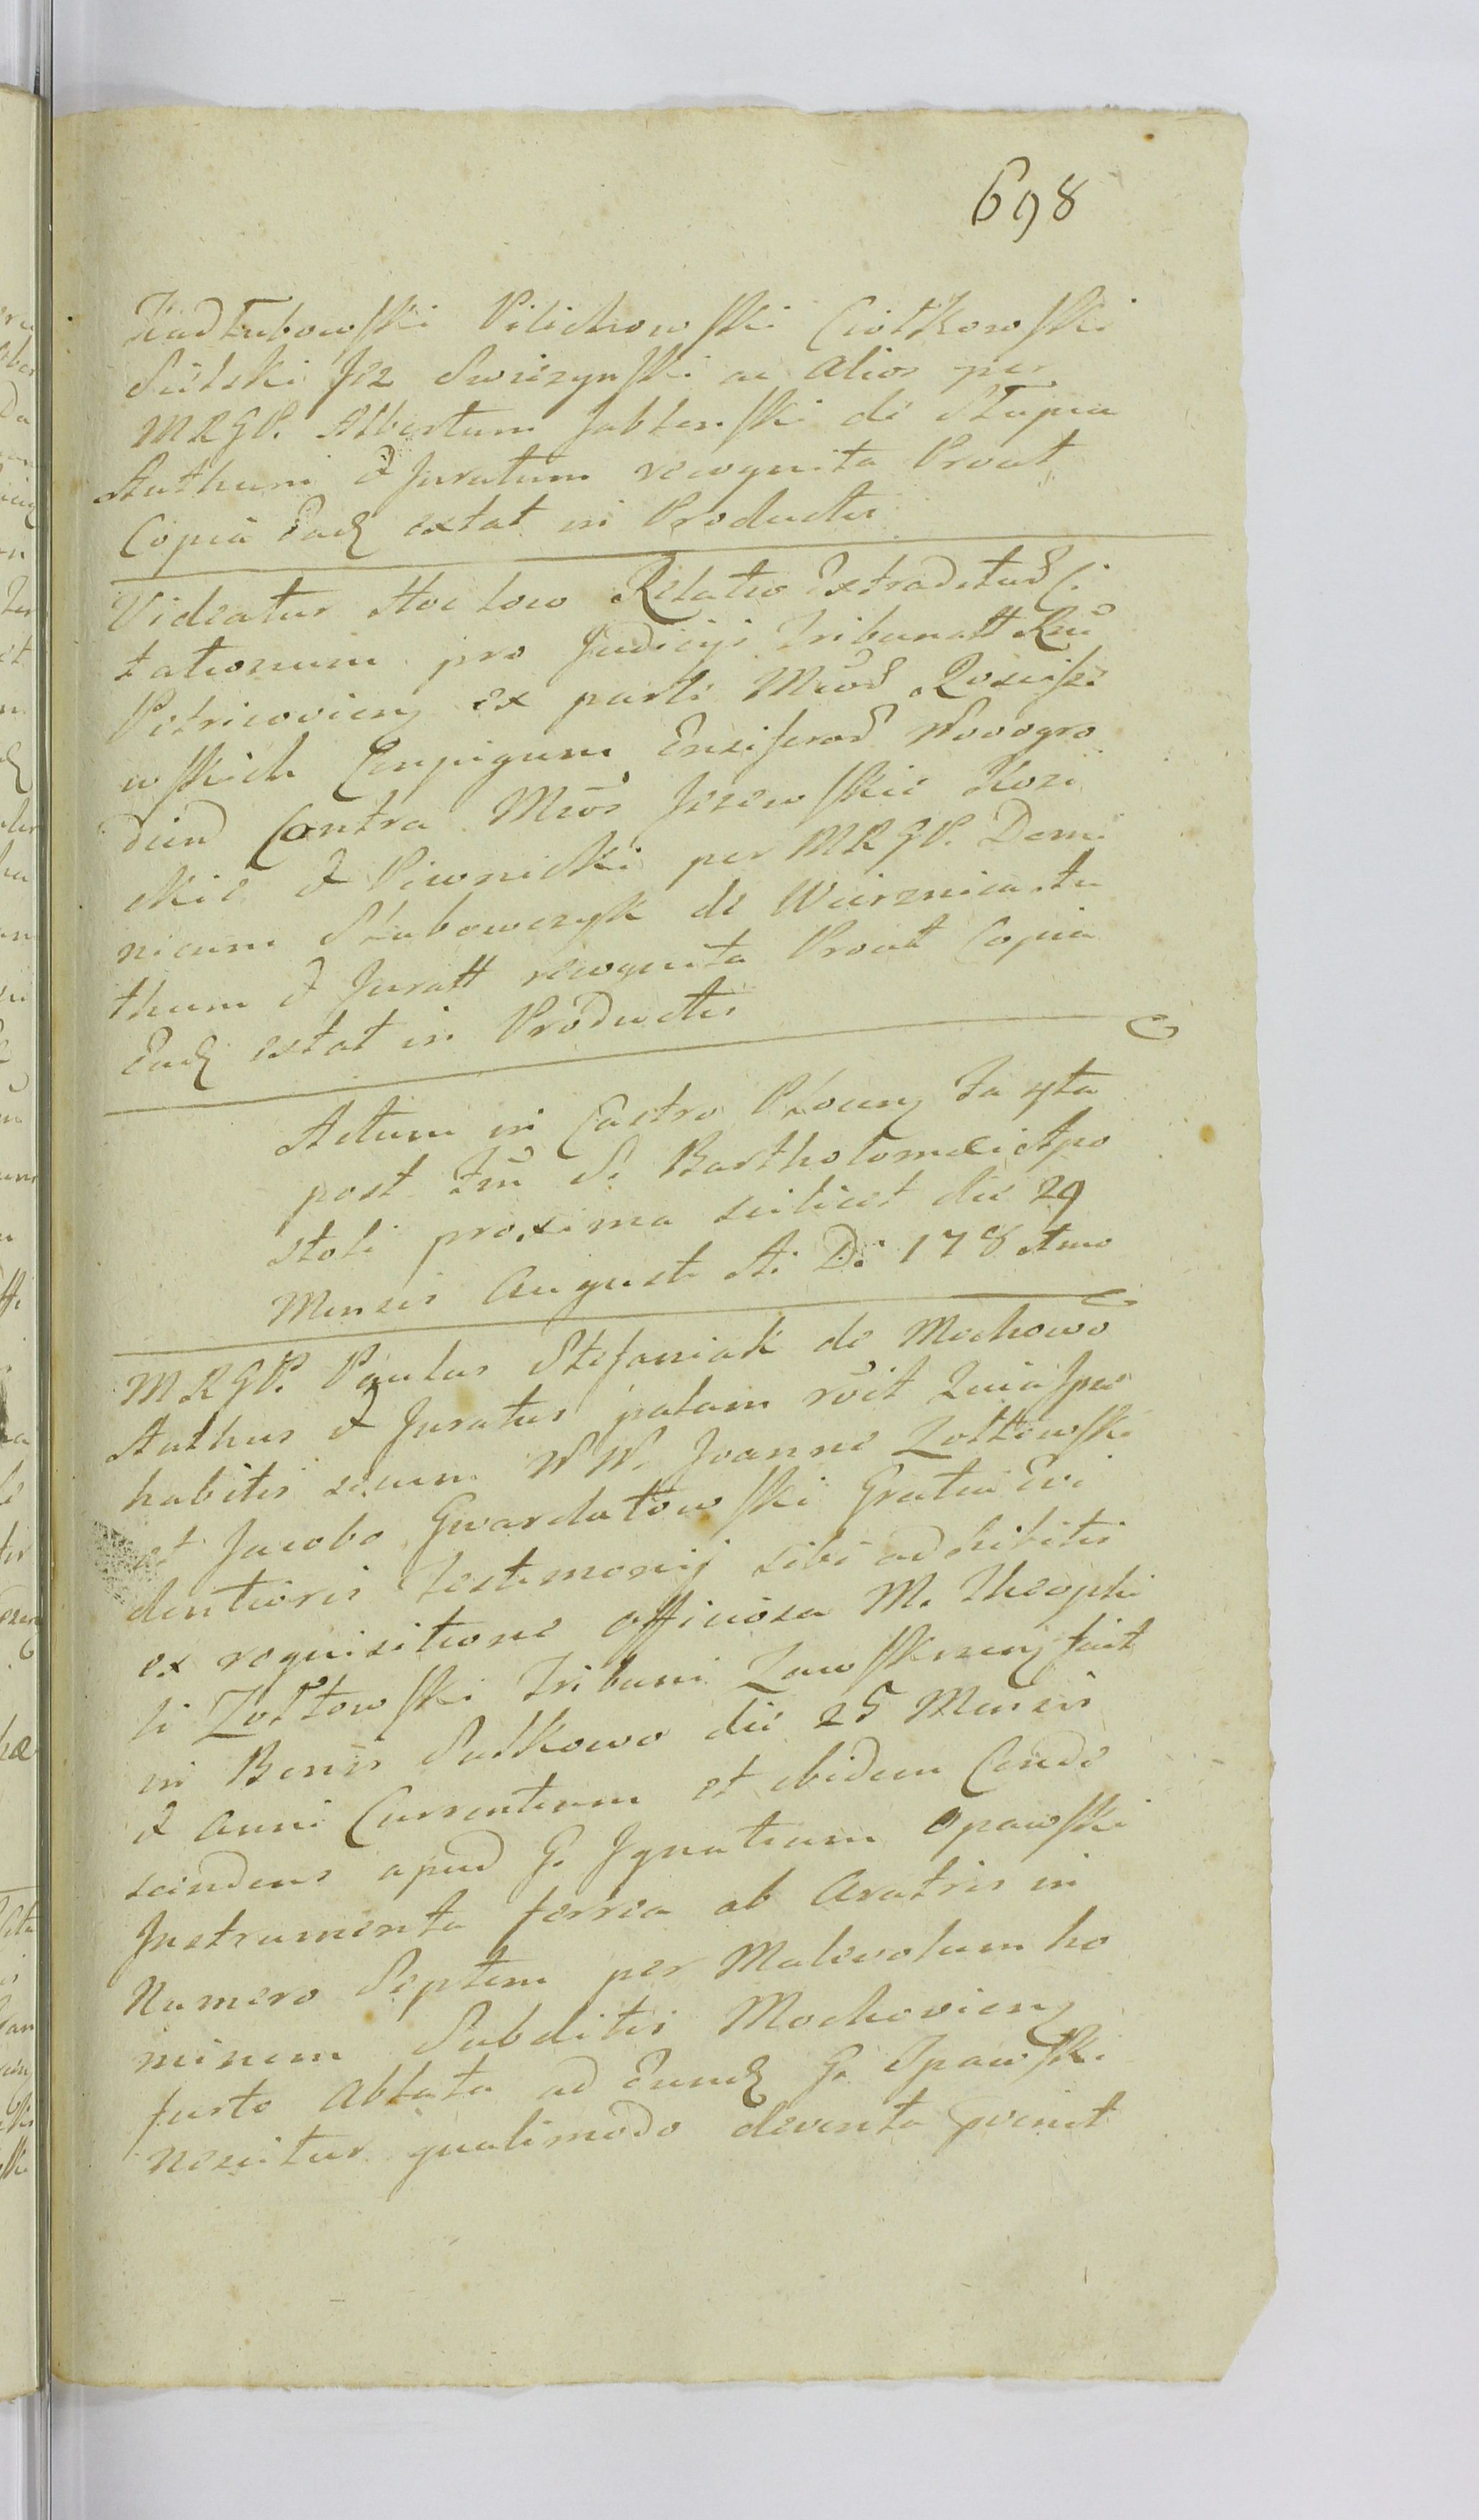 698
Kadłubowski Pilichowski Ciołkowski
Sielski Jez Swiezynski ac Alios per
MRGP. Albertum Jabłonski de Słupia
Authum & Juratum recognita Prout
Copia Ead extat in Productis
Videatur Hoc loco Relatio Extraditad Ci
tationum pro Judicijs Tribunatt Rni
Petricovien ex parte Mcod Roscisze
wskich Conjugum Ensiferod Novogro
dien Contra Mcos Jezewskie Kozi
ckie & Piwnicki per MRGP. Domi
nicum Słubowczyk de Wierznica Au
thum & Juratt recognita Prout Copia
Ead extat in Productis
Actum in Castro Płocen Fa 4ta
post Fm S. Bartholomei Apo
stoli proxima scilicet die 29
Mensis Augusti A. D. 178 Amo
MRGP. Paulus Stefaniak de Mochowo
Authus & Juratus palam rcit Quia Ipse
habitis secum NN. Joanne Zołtowski
et Jacobo Gwardatowski Gratia Evi
dentioris Testimonij sibi adhibitis
ex requisitione officiosa M. Theophi
li Zołtowski Tribuni Zawskrzen fuit
in Bonis Sulkowo die 25 Mensis
& anni Currentium et ibidem Conde
scendens apud G. Ignatium Opawski
Instrumenta ferrea ab Aratris in
Numero Septem per Malevolum ho
minem Subditis Mochovien
furto Ablata ad Eund G. Opawski
nescitur qualimodo deventa penit